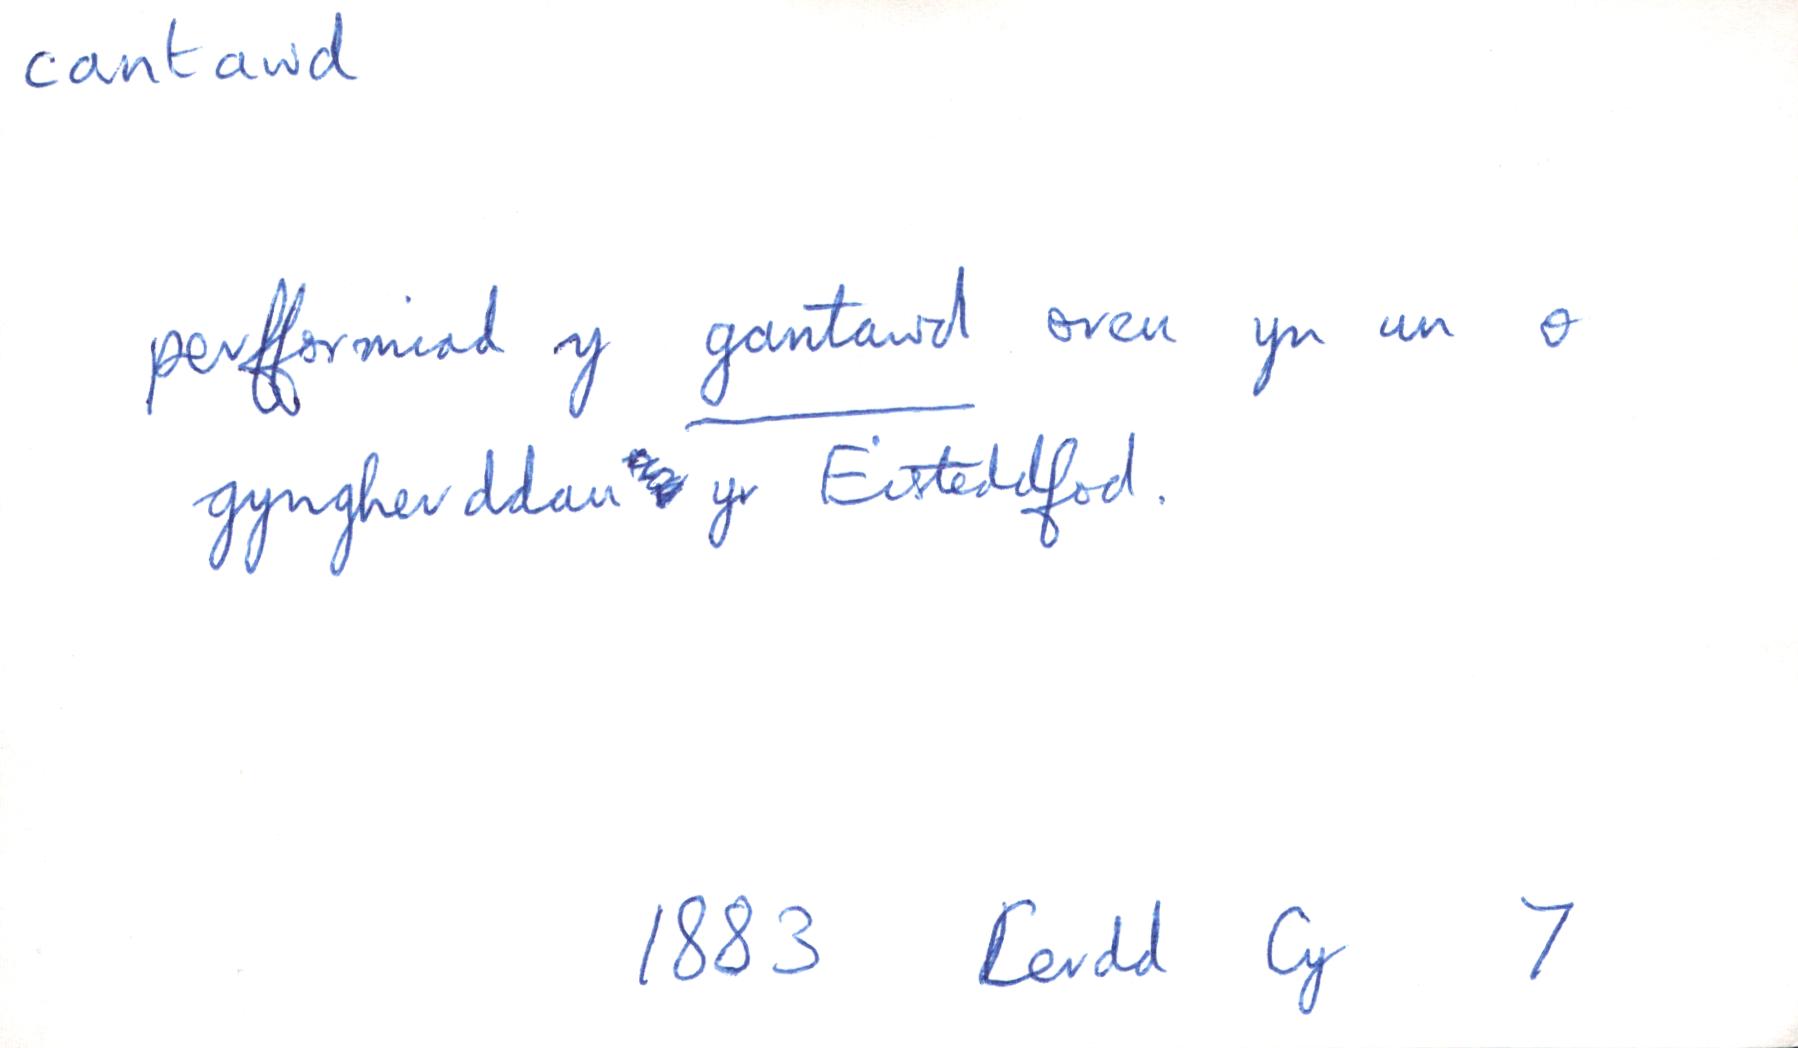 cantawd
perfformiad y gantawd oreu yn un o
gyngherddau yr Eisteddfod.
1883 Cerdd Cy 7